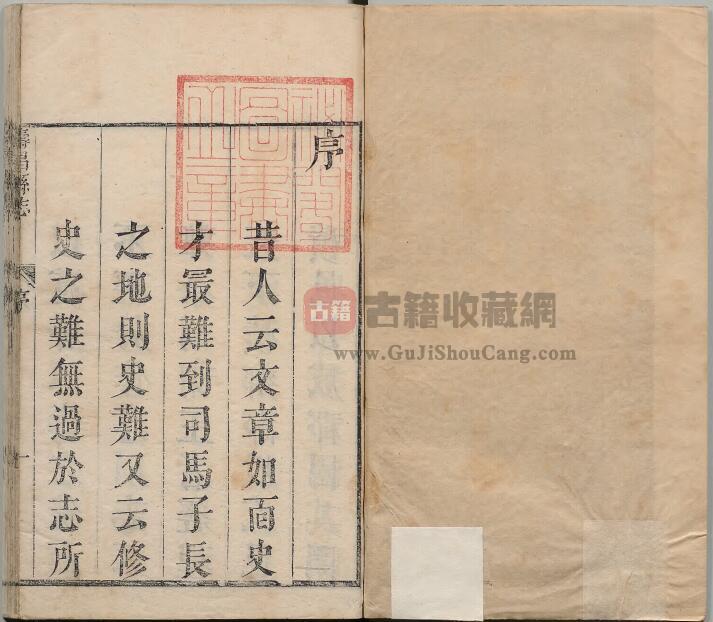 序
昔人云文章如靣史
才㝡難到司馬子長
之地則史難又云修
史之難無過於志所
壽昌縣志
序
一
古籍
古籍收藏網
www.GuJiShouCang.com